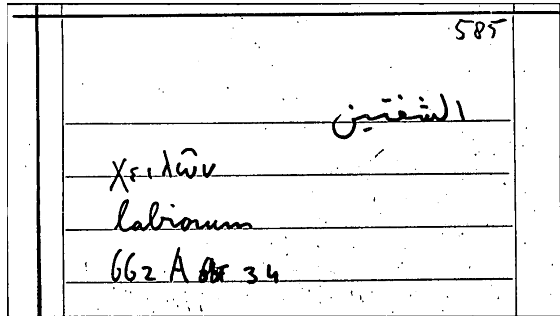 585
الشفتين
χειλῶν
labiorum
662 A 34